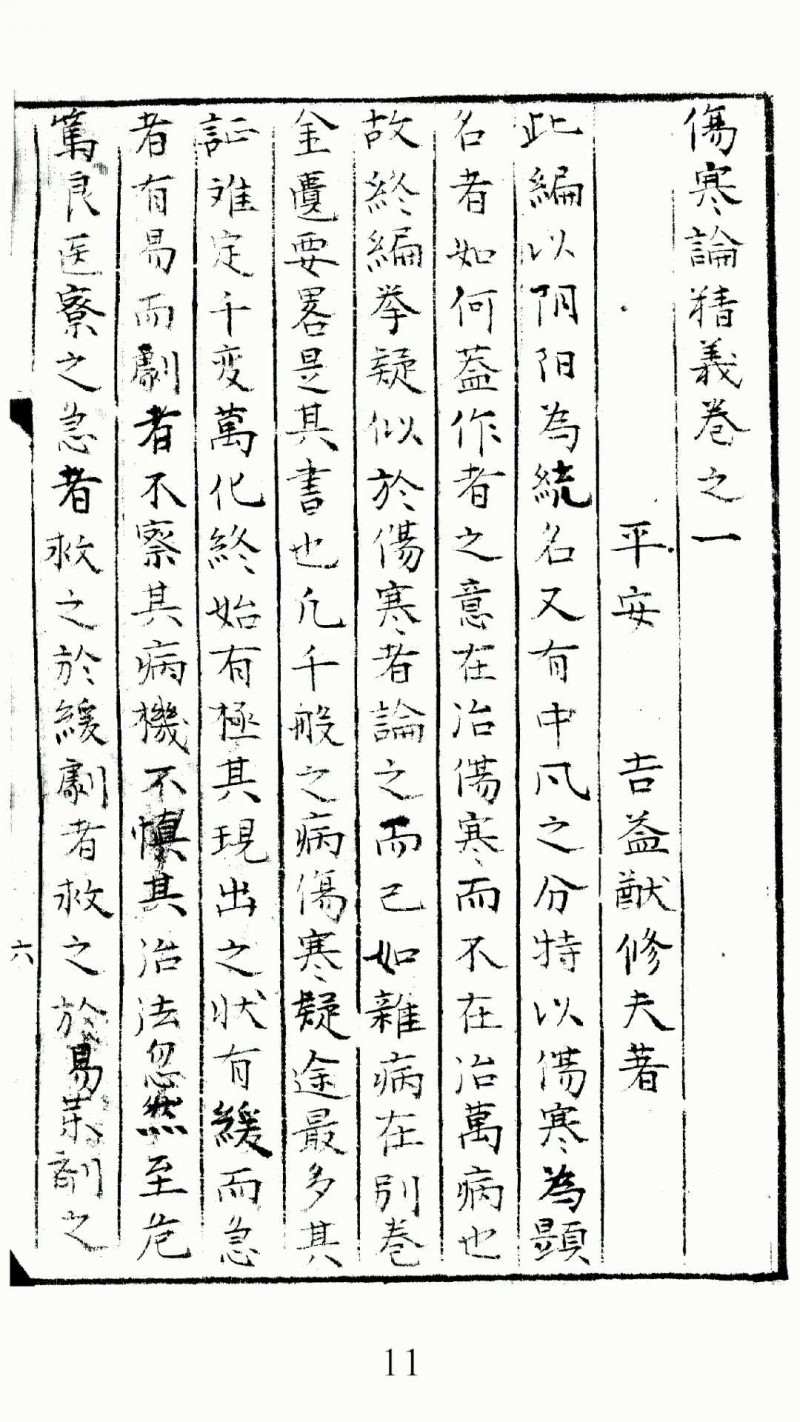 傷寒論精義卷之一
平安 吉益猷修夫著
此編以阴阳為統名又有中风之分特以傷寒為顕
名者如何蓋作者之意在冶傷寒而不在冶萬病也
故終編挙疑似於傷寒者論之而已如雜病在別卷
金匱要畧是其書也凡千般之病傷寒疑途最多其
証难定千变萬化終始有極其現出之状有緩而急
者有易而劇者不察其病機不慎其冶法忽然至危
篤良医寮之急者救之於緩劇者救之於易茱劑之
六
11